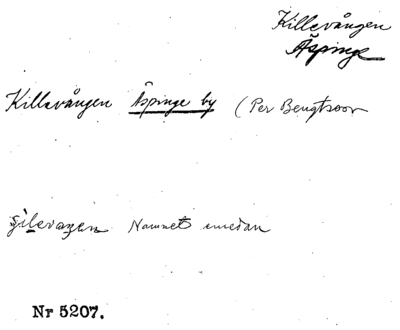 Killevången
Äspinge
Killevången Äspinge by (Per Bengtsson
Namnet emedan
Nr 5207.